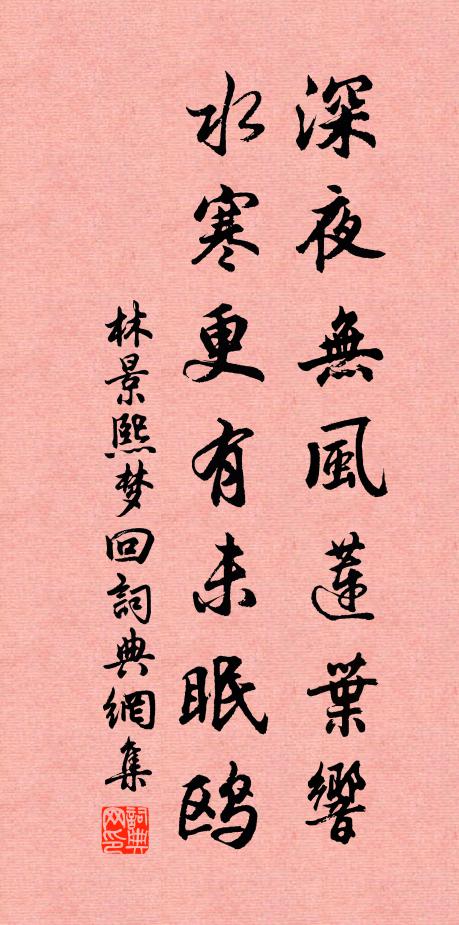 深夜無風蓮葉響
水寒更有未眠鸥
林景熙梦回詞典網集
詞典网印